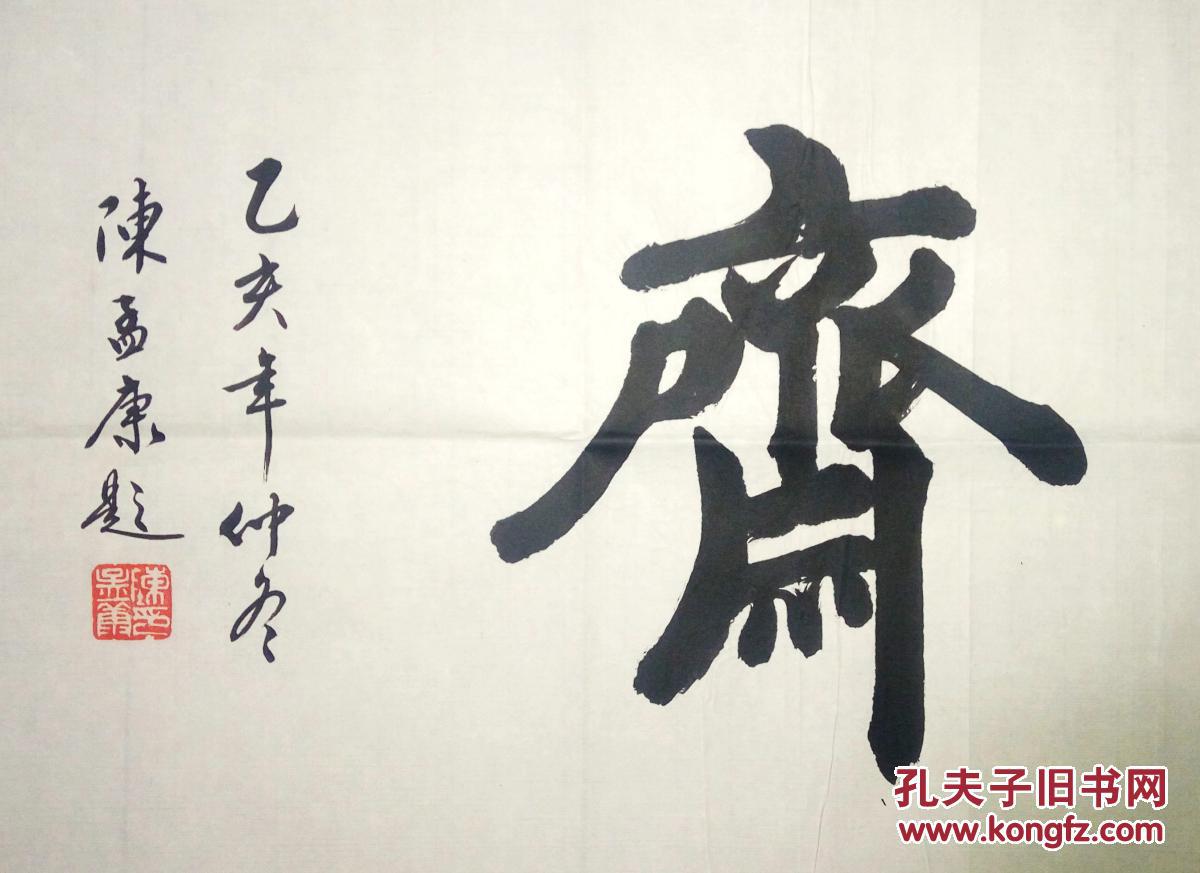 齋
乙亥年仲冬
陳孟康題
陳孟康印
孔夫子旧书网
www.kongfz.com